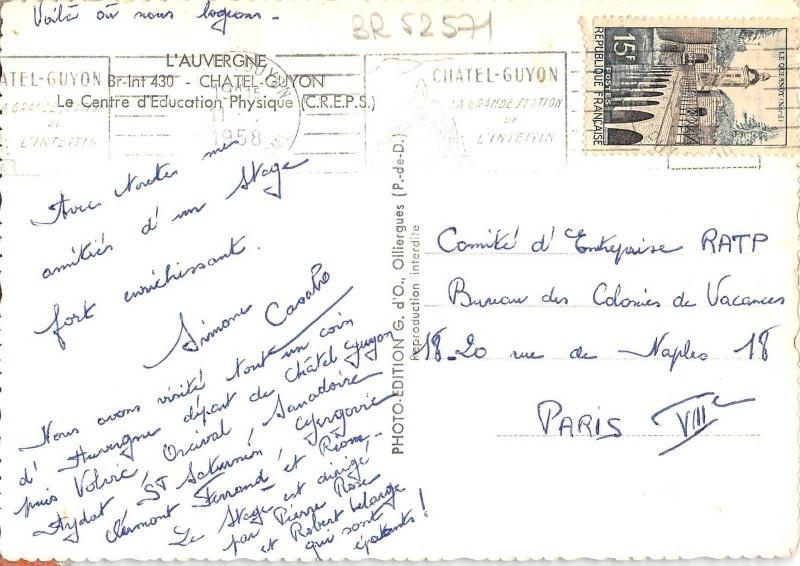 Voilà où nous logeons.
BR 52571
L'AUVERGNE
Br-Int 430 - CHATEL-GUYON
Le Centre d'Education Physique (C.R.E.P.S.)
CHATEL-GUYON
LA GRANDE STATION
DE
L'INTESTIN
1958
CHATEL-GUYON
LA GRANDE STATION
DE
L'INTESTIN
15F
POSTES
REPUBLIQUE FRANÇAISE
LE QUESNOY (NORD)
Avec toutes mes
amitiés d'un Stage
fort enrichissant.
Simone
Nous avons visité tout un coin
d'Auvergne départ de Châtel Guyon
puis Volvic, Orcival, Sanadoire
Aydat, ST Saturnin, Gergovie
Clermont Ferrand et Riom.
Le Stage est dirigé
par Pierre Rose
et Robert
qui sont
épatants!
PHOTO-EDITION G. d'O., Olliergues (P.-de-D.)
Reproduction interdite
Comité d'Entreprise RATP
Bureau des Colonies de Vacances
18-20 rue de Naples 18
PARIS VIIIe